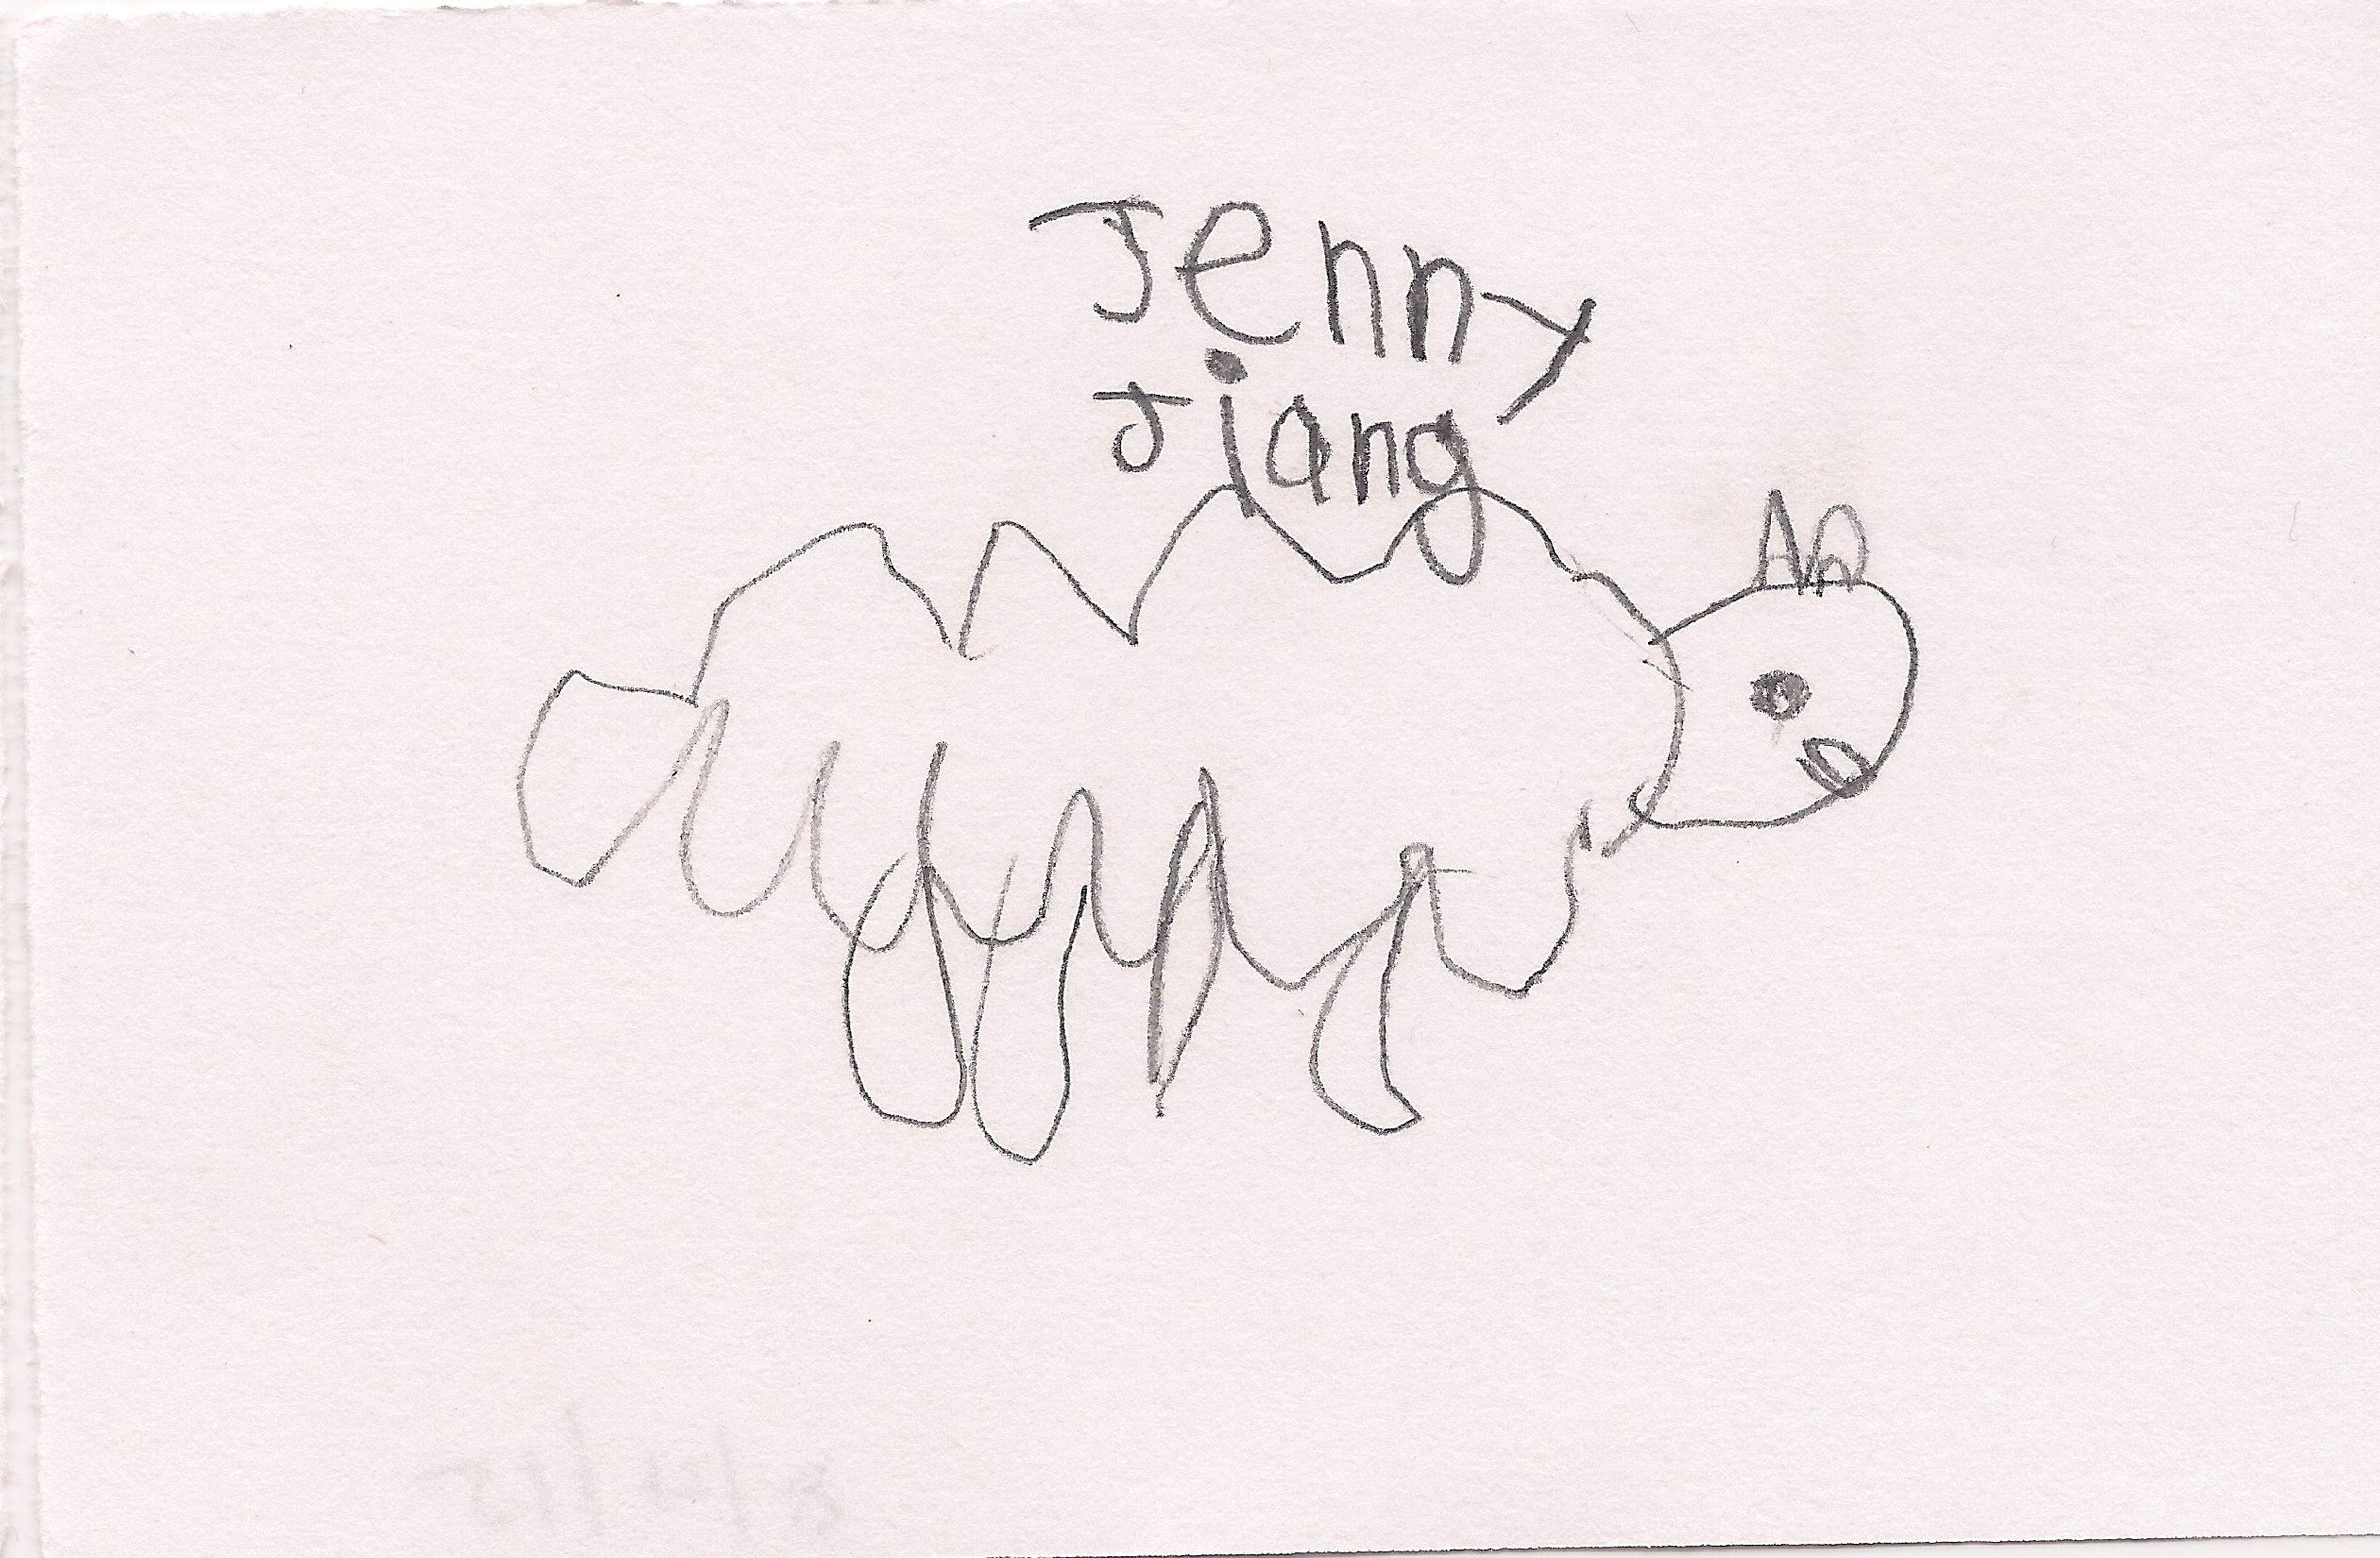 Jenny
Jiang